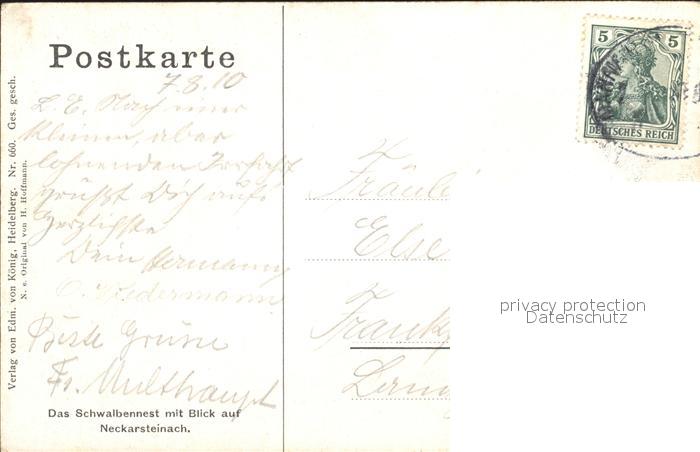 Postkarte
7.8.10
L. E. Nach einer
kleinen, aber
lohnenden Irrfahrt
grüßt Dich aufs
Herzlichste
Dein Hermann
O. Biedermann
Beste Grüsse
Fr. Multhaupt
Das Schwalbennest mit Blick auf
Neckarsteinach.
Verlag von Edm. von König, Heidelberg. Nr. 660. Ges. gesch.
N. e. Original von H. Hoffmann.
5 5
DEUTSCHES REICH
Fräulei
Else
Frankf
privacy protection
Datenschutz